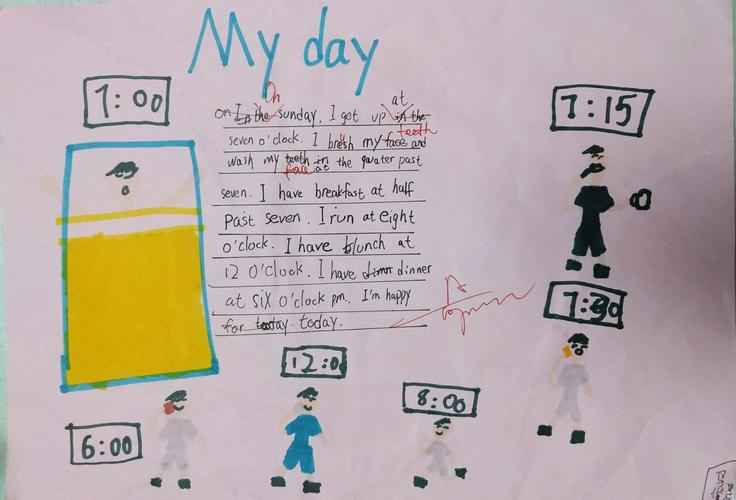 My day
7:00
7:15
On
at
on In the sunday. I got up in the
teeth
seven o'clock. I bresh my face and
wash my teeth in the quater past
face at
seven. I have breakfast at half
past seven. I run at eight
o'clock. I have lunch at
12 o'clock. I have dinner
at six o'clock pm. I'm happy
for today.
7:30
12:00
8:00
6:00